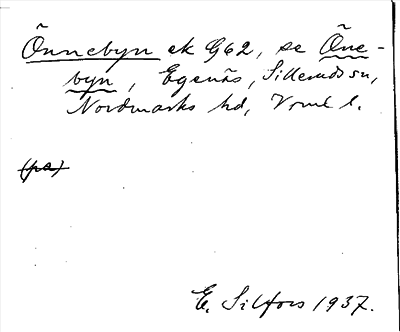 Önnebyn ek G62, se Öne-
byn, Egenäs, Silleruds sn,
Nordmarks hd, Vrml l.
(pa)
E. Silfors 1937.